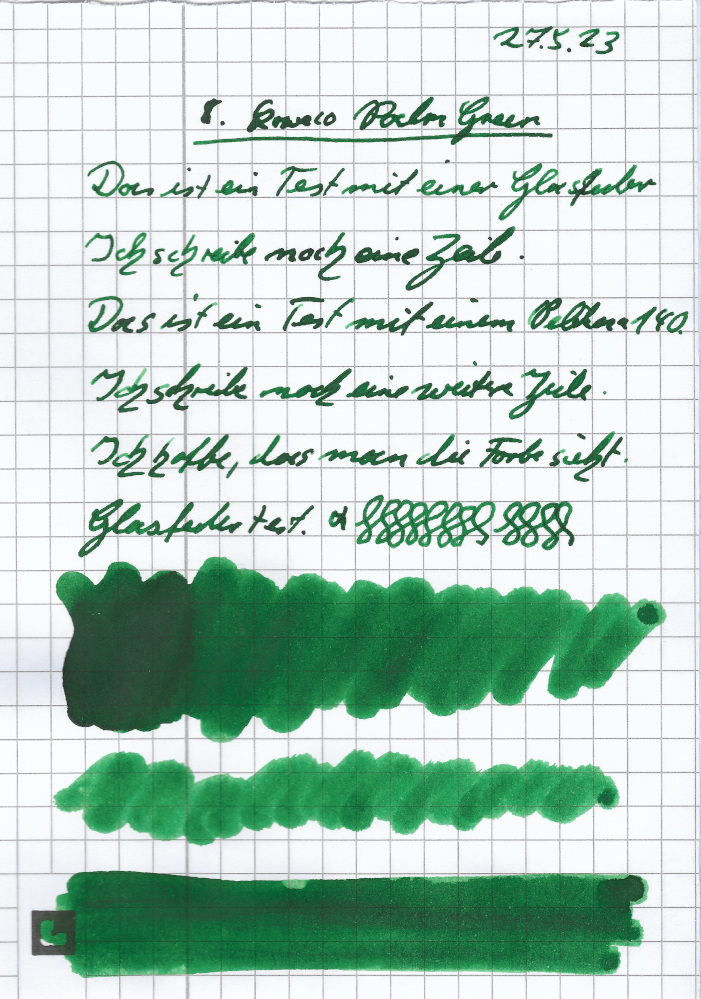 27.5.23
8. Kaweco Palm Green
Das ist ein Test mit einer Glasfeder
Ich schreibe noch eine Zeile.
Das ist ein Test mit einem Pelikan 140.
Ich schreibe noch eine weitere Zeile.
Ich hoffe, das man die Farbe sieht.
Glasfedertest.